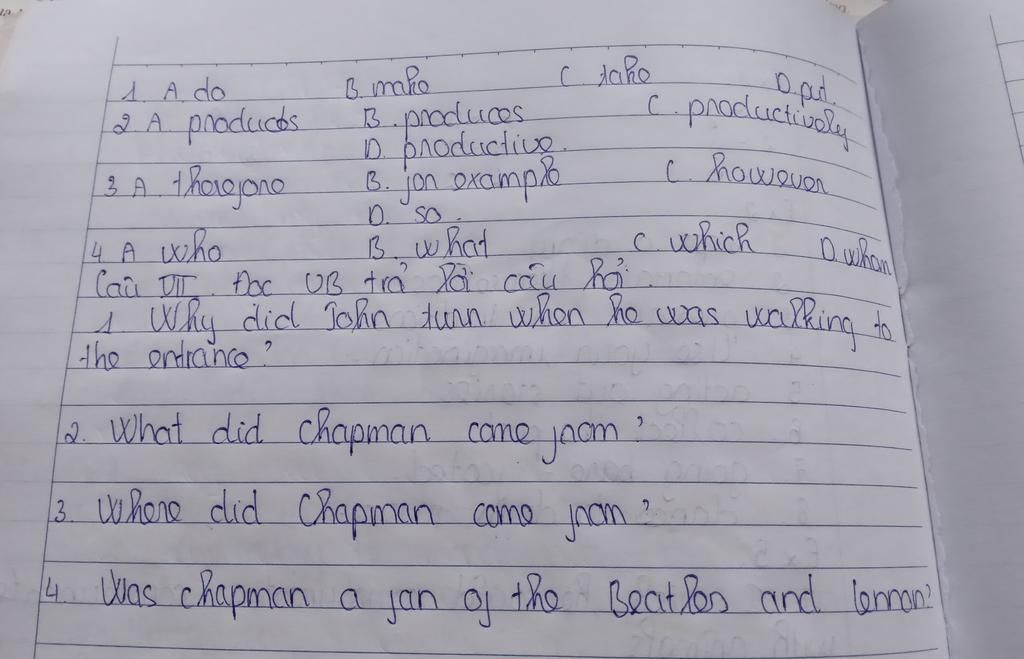 1. A. do B. make C. take D. put.
2 A. products B. produces C. productively
D. productive.
3 A therefore B. for example C. however
D. so.
4 A who B. what C. which D. when
Câu VII. Đọc VB trả lời câu hỏi.
1 Why did John turn when he was walking to
the entrance?
2. What did Chapman come from?
3. Where did Chapman come from?
4. Was chapman a fan of the Beatles and lennon?